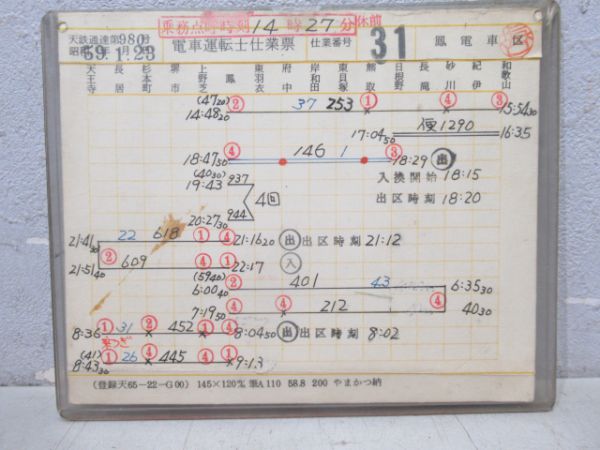 乗務点呼時刻 14時27分 休前
天鉄運達第980号
昭和59.1.23
電車運転士仕業票 仕業番号 31 鳳電車区
天王寺 長居 杉本町 堺市 上野芝 鳳 東羽衣 府中 岸和田 東貝塚 熊取 日根野 長滝 砂川 紀伊 和歌山
(47 20) ② 37 253 ① ④ ③ 15:54 30
14:48 20
17:04 50 便1290 16:35
④ 146 1 ③
18:47 50 18:29 出
(40 30) 937 入換開始 18:15
19:43 4回 出区時刻 18:20
20:27 30 944
21:41 30 22 618 ① ④ 21:16 20 出 出区時刻 21:12
②
21:51 40 609 ④ ① 22:17 入
(59 40) 401 43 6:35 30
6:00 40 ④
7:19 50 ④ 212 ④ 40 30
① 31 ② 452 ① ④
8:36 8:04 50 出 出区時刻 8:02
(41) ① 26 ④ 445 ④ ①
8:43 30 9:13
(登録天65-22-G00) 145×120㎜ 薄A110 58.8 200 やまかつ納